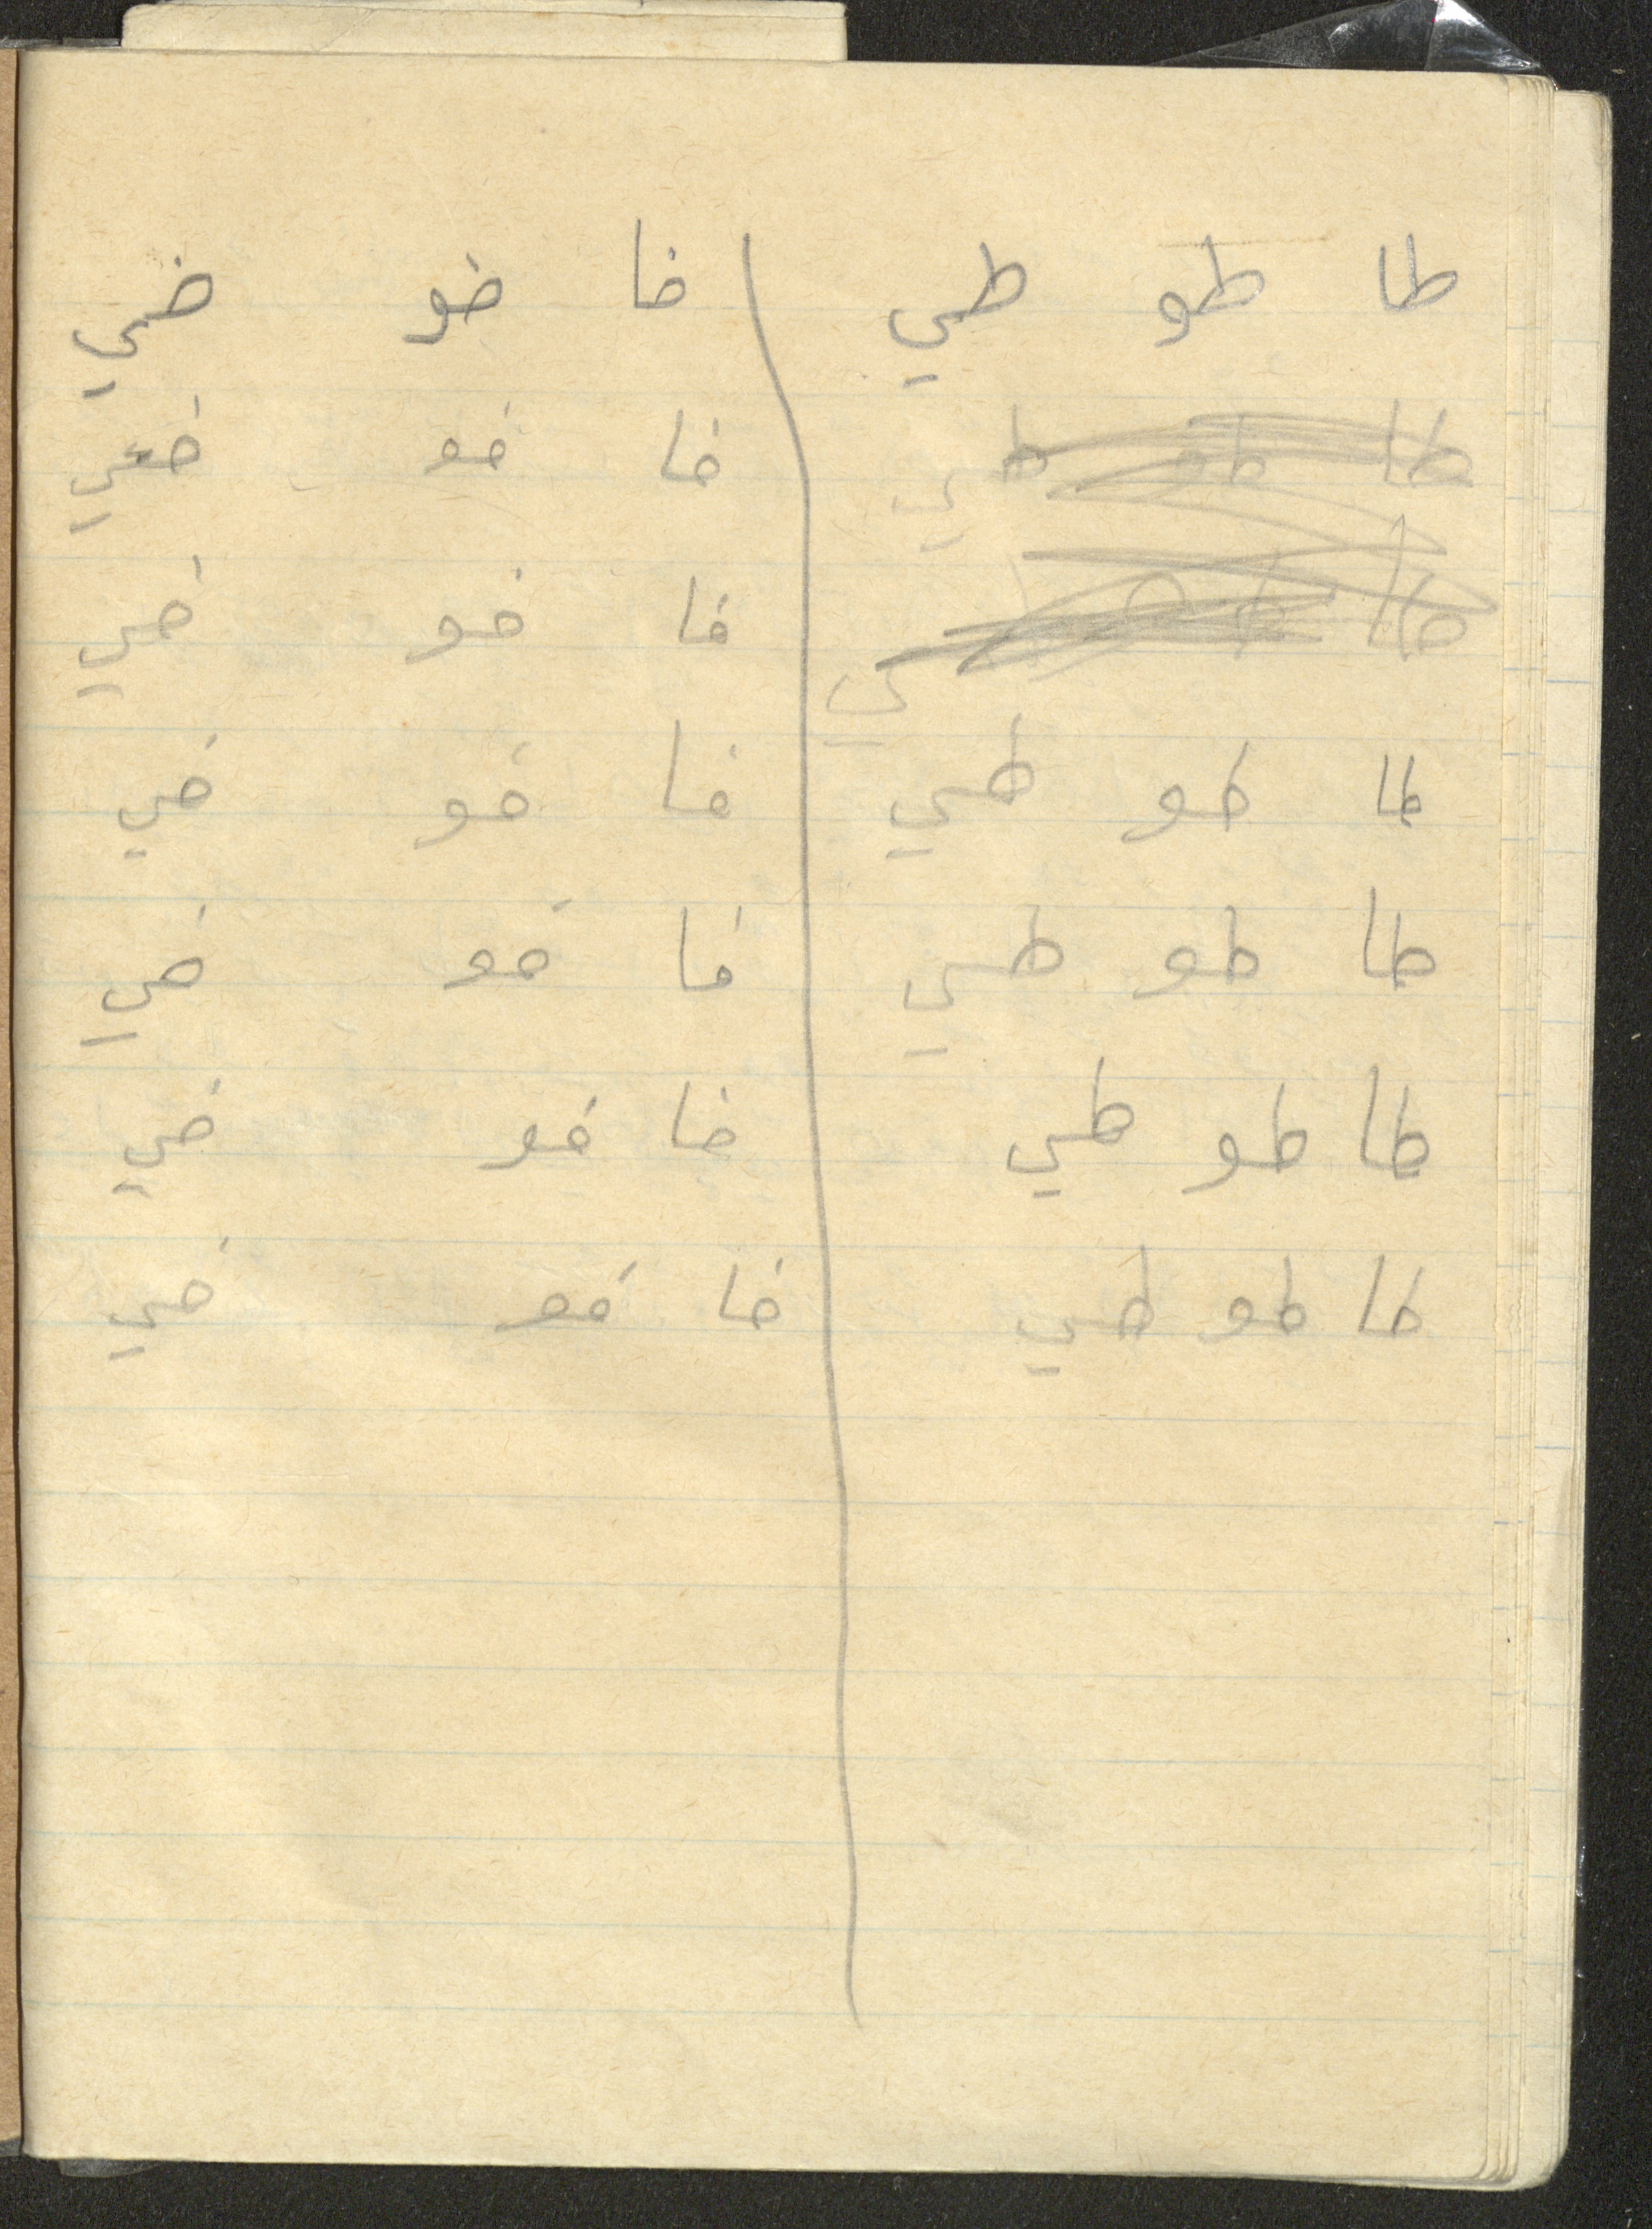 طا طو طي ضا ضو ضي
طا طو طي ضا ضو ضي
طا ضا ضو ضي
طا طو طي ضا ضو ضي
طا طو طي ضا ضو ضي
طا طو طي ضا ضو ضي
طا طو طي ضا ضو ضي